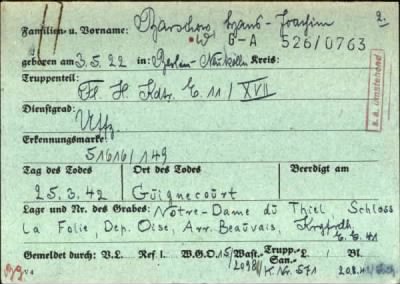 2.
Familien- u. Vorname: Barschow, Hans-Joachim
G-A 526/0763
geboren am 3.5.22 in: Berlin-Neukölln Kreis:
Truppenteil: Fl. H. Kdtr. E. 11/XVII
s. a. umstehend
Dienstgrad: Uffz
Erkennungsmarke: 51616/149
Tag des Todes Ort des Todes Beerdigt am
25.3.42 Guignecourt
Lage und Nr. des Grabes: Notre-Dame du Thiel, Schloss
La Folie, Dep. Oise, Arr. Beauvais,
Gemeldet durch: V.L. Ref. I. W.G.O. 15/ Wast.- Trupp.- L. Bl.
2098 San.-
K. Nr. 571 20.8.